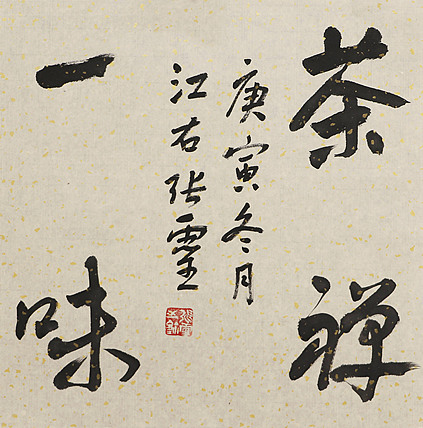 茶禅
一味
庚寅冬月
江右张